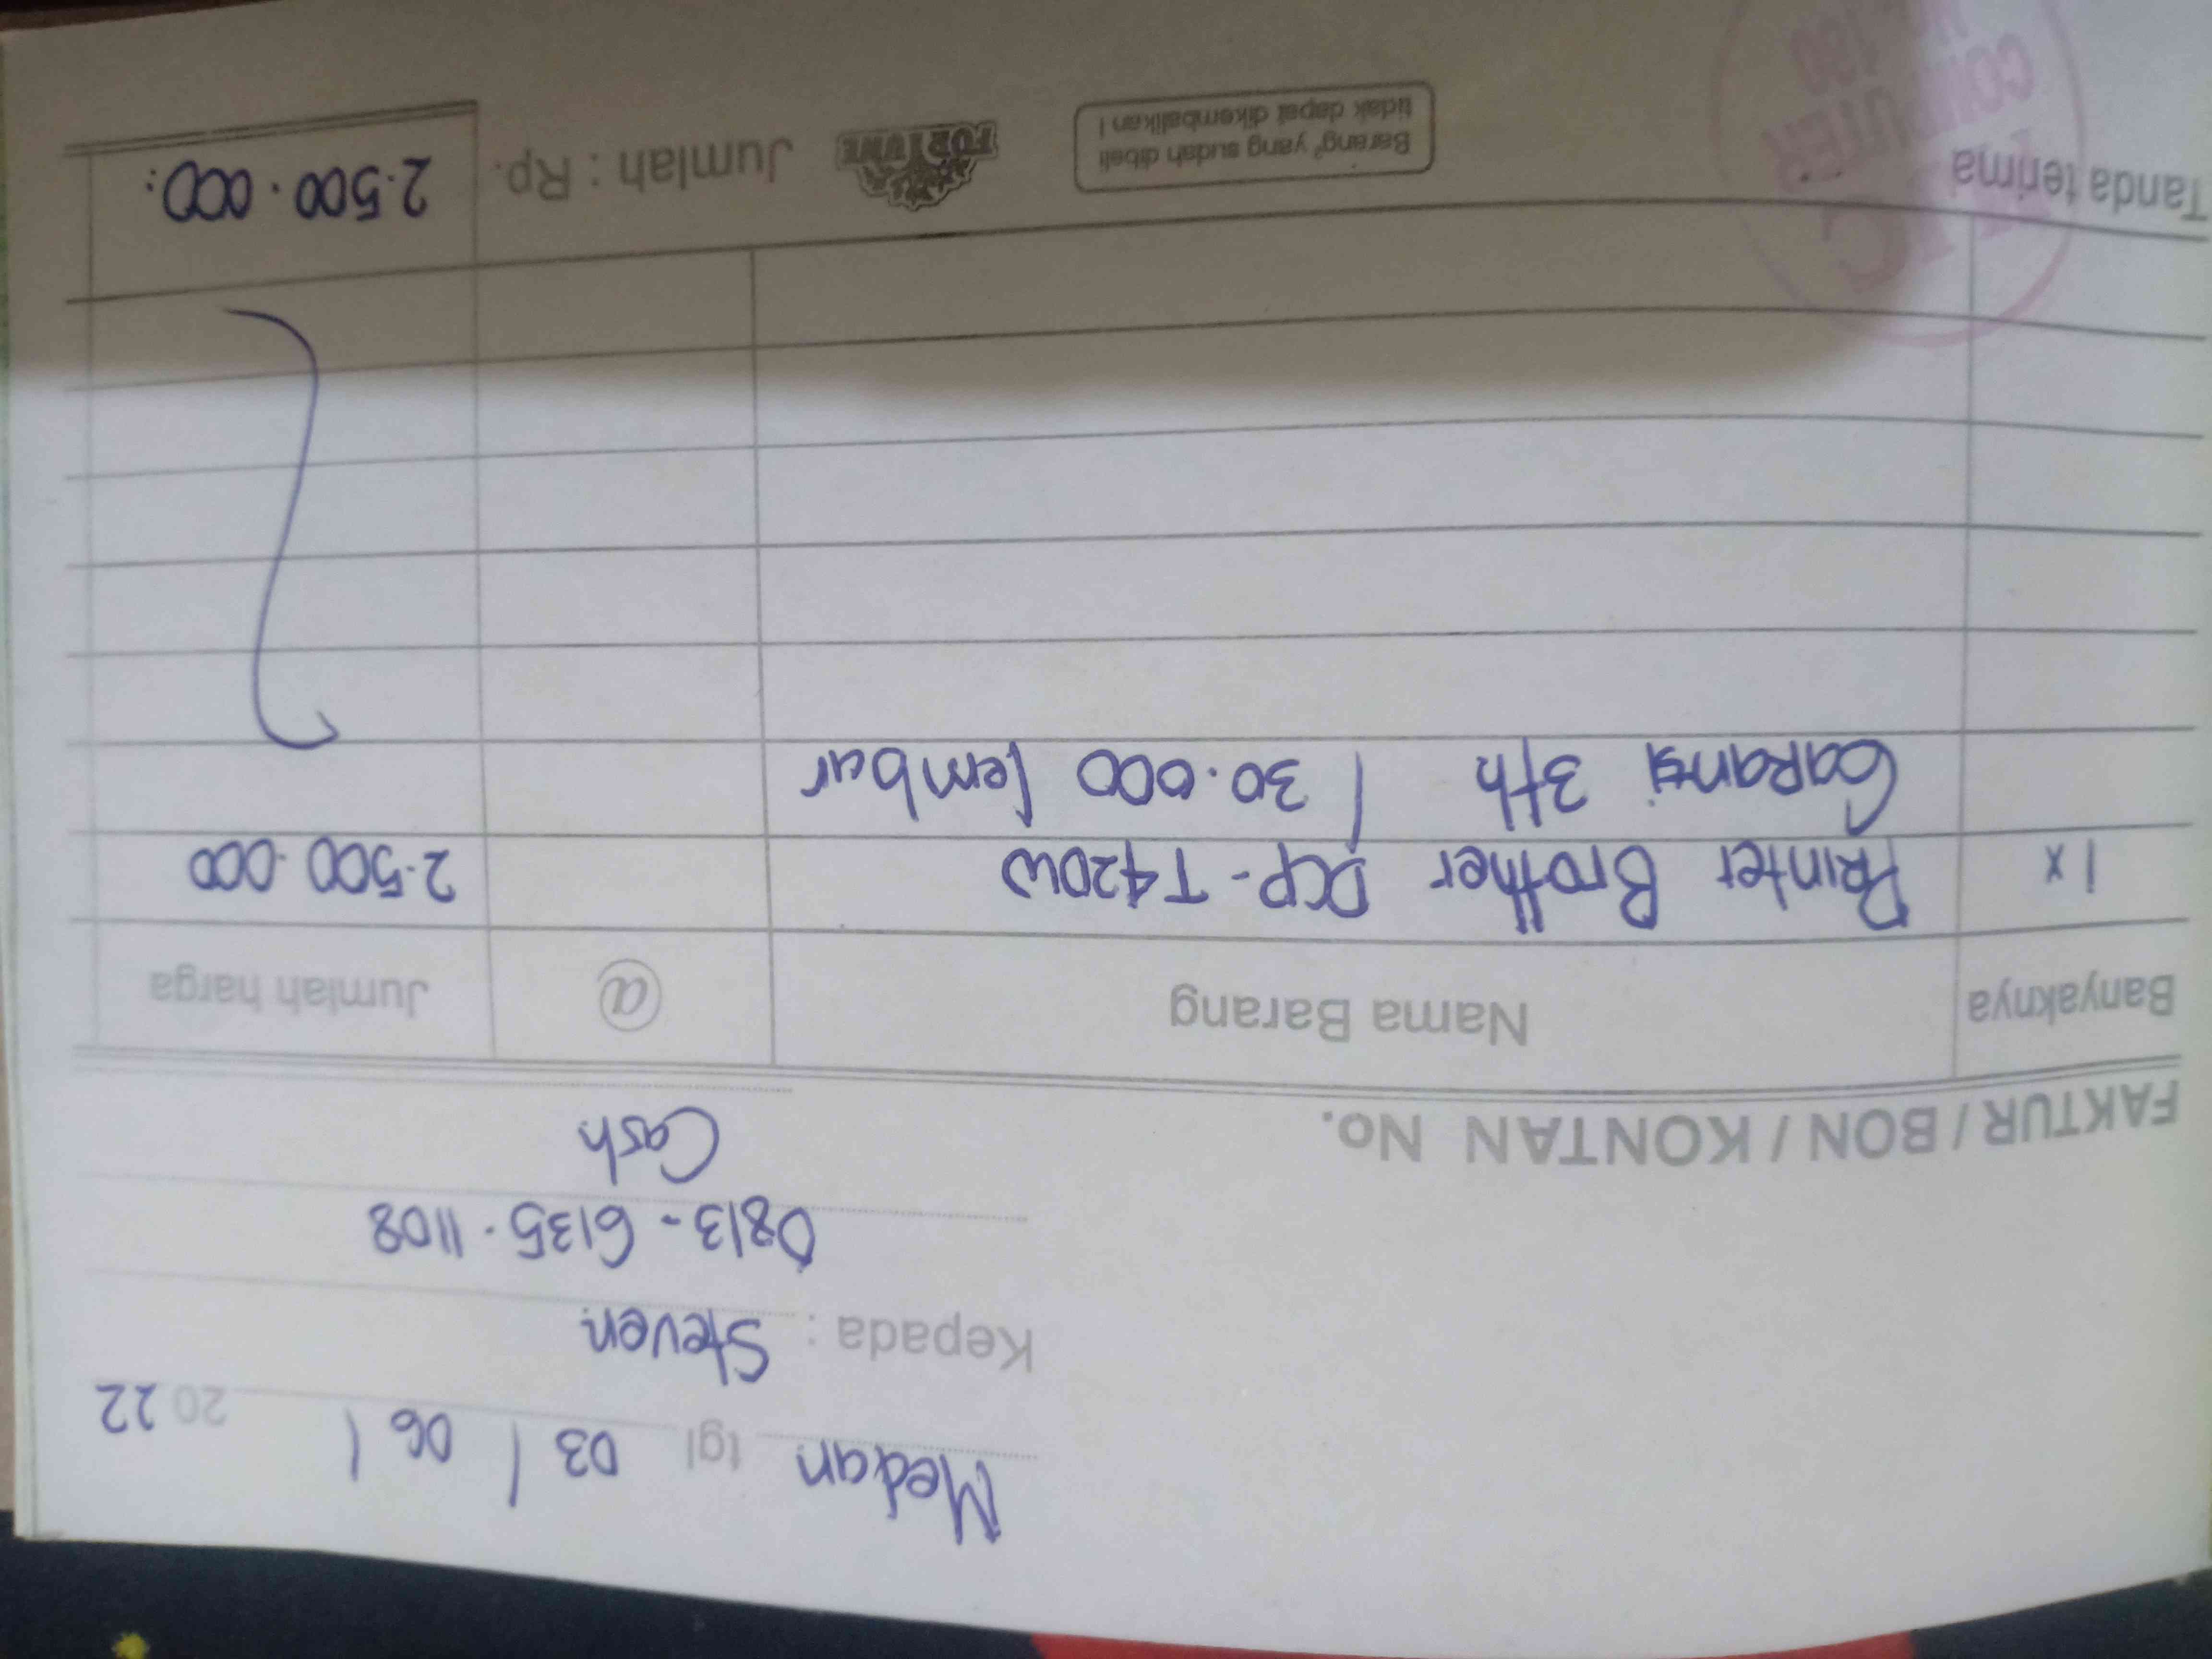 Medan tgl 03 / 06 / 2022
Kepada : Steven
0813 - 6135 - 1108
Cash
FAKTUR / BON / KONTAN No.
Banyaknya Nama Barang @ Jumlah harga
1 x Printer Brother DCP - T420W 2.500.000
Garansi 3th / 30.000 lembar
Tanda terima
Barang² yang sudah dibeli
tidak dapat dikembalikan !
FORTUNE
Jumlah : Rp. 2.500.000:
COMPUTER
180